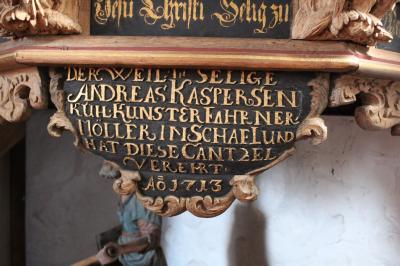 Jesu Christi Selig zu
DER WEIL: SELIGE
ANDREAS KASPERSEN
KUHL KUNSTERFAHRNER
MÖLLER IN SCHAELUND
HAT DIESE CANTZEL
VEREHRT
AÕ 1713